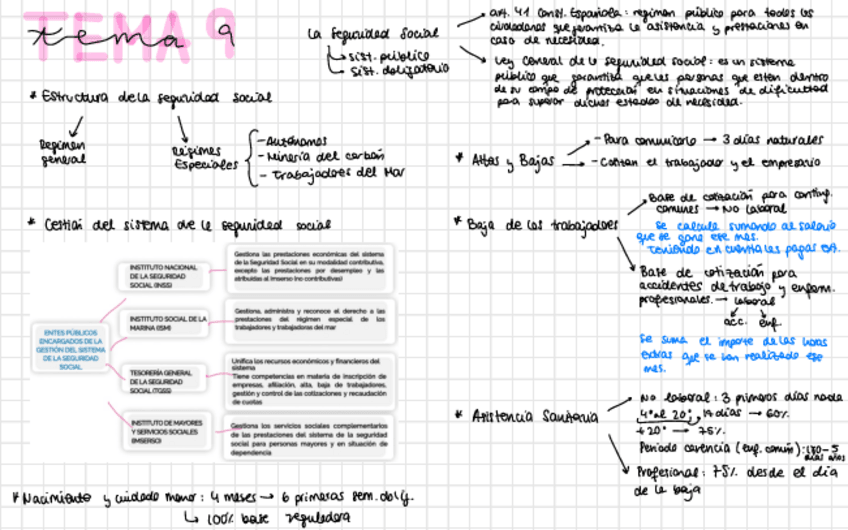 TEMA 9
tema 9
La Seguridad Social
→ sist. público
→ sist. obligatorio
art. 41 Const. Española: regimen público para todos los
ciudadanos que garantiza la asistencia y prestaciones en
caso de necesidad.
Ley General de la seguridad social: es un sistema
público que garantiza que las personas que esten dentro
de su campo de protección en situaciones de dificultad
para superar dichos estados de necesidad.
* Estructura de la seguridad social
Regimen
general
Regimes
Especiales
- Autónomos
- Minería del carbón
- Trabajadores del Mar
* Gestión del sistema de la seguridad social
ENTES PÚBLICOS
ENCARGADOS DE LA
GESTIÓN DEL SISTEMA
DE LA SEGURIDAD
SOCIAL
INSTITUTO NACIONAL
DE LA SEGURIDAD
SOCIAL (INSS)
Gestiona las prestaciones económicas del sistema
de la Seguridad Social en su modalidad contributiva,
excepto las prestaciones por desempleo y las
atribuidas al Imserso (no contributivas)
INSTITUTO SOCIAL DE LA
MARINA (ISM)
Gestiona, administra y reconoce el derecho a las
prestaciones del régimen especial de los
trabajadores y trabajadoras del mar
TESORERÍA GENERAL
DE LA SEGURIDAD
SOCIAL (TGSS)
Unifica los recursos económicos y financieros del
sistema
Tiene competencias en materia de inscripción de
empresas, afiliación, alta, baja de trabajadores,
gestión y control de las cotizaciones y recaudación
de cuotas
INSTITUTO DE MAYORES
Y SERVICIOS SOCIALES
(IMSERSO)
Gestiona los servicios sociales complementarios
de las prestaciones del sistema de la seguridad
social para personas mayores y en situación de
dependencia
* Nacimiento y cuidado menor: 4 meses → 6 primeras sem. oblig.
↳ 100% base reguladora
* Altas y Bajas
- Para comunicarlo → 3 días naturales
- Cotizan el trabajador y el empresario
* Baja de los trabajadores
Base de cotización para conting.
comunes → No laboral
Se calcula sumando al salario
que se gane ese mes.
Teniendo en cuenta las pagas ex.
Base de cotización para
accidentes de trabajo y enferm.
profesionales. → laboral
acc. enf
Se suma el importe de las horas
extras que se han realizado ese
mes.
* Asistencia Sanitaria
No laboral: 3 primeros días nada
4º al 20º, 17 días → 60%
+ 20º → 75%
Periodo carencia (enf. común): 180 - 5
días años
Profesional: 75% desde el día
de la baja